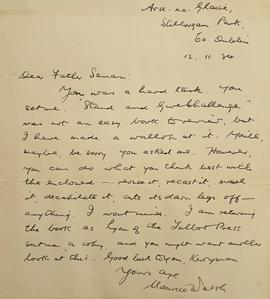 Ard-na-Glaise,
Stillorgan Park,
Co Dublin
12. 11. 34
Dear Father Senan:
Yours was a hard task you
set me. "Stand and Give Challenge"
was not an easy book to review, but
I have made a wallop at it. You'll,
maybe, be sorry you asked me. However,
you can do what you think best with
the enclosed – revise it, recast it, maul
it, decapitate it, cut its darn legs off –
anything. I won't mind. I am returning
the book as Lyon of the Talbot Press
sent me a copy, and you might want another
look at this. Good luck to you,
Yours aye
Maurice Walsh